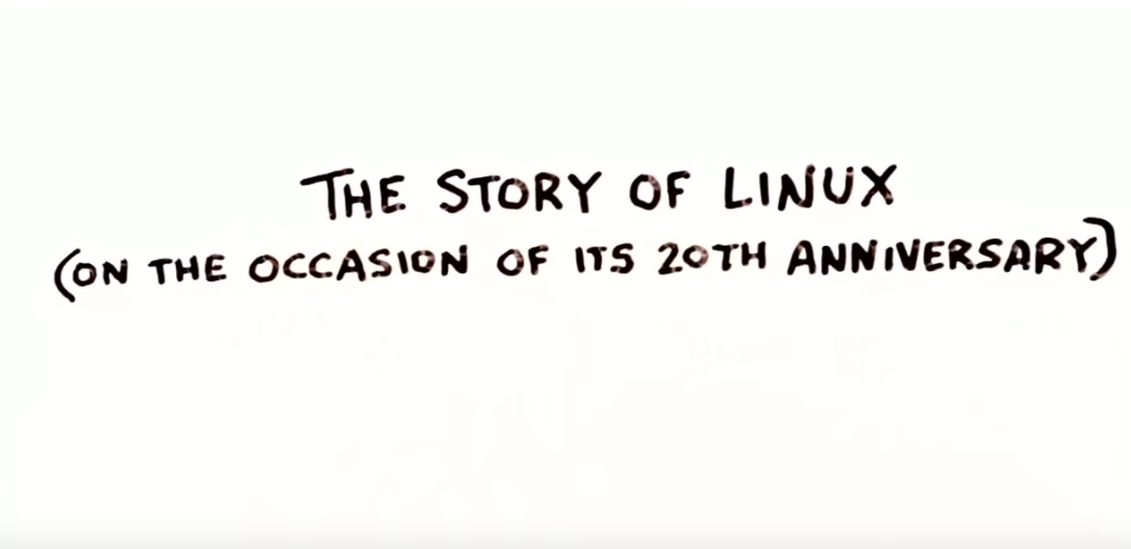 THE STORY OF LINUX
(ON THE OCCASION OF ITS 20TH ANNIVERSARY)